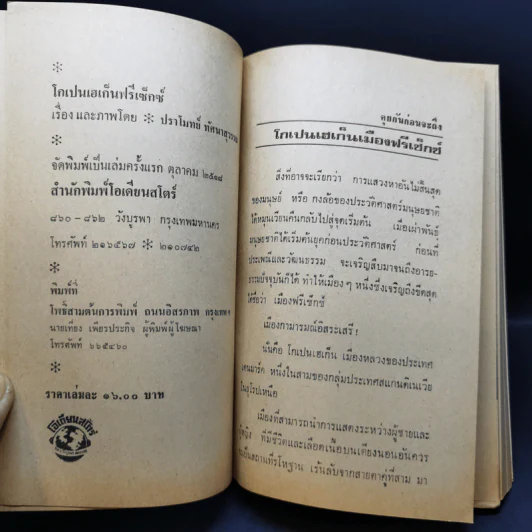 *
โกเปนเฮเก็นฟรีเซ็กซ์
เรื่อง และภาพโดย * ปราโมทย์ ทัศนาสุวรรณ
*
จัดพิมพ์เป็นเล่มครั้งแรก ตุลาคม ๒๕๑๘
สำนักพิมพ์โอเดียนสโตร์
๘๖๐ – ๘๖๒ วังบูรพา กรุงเทพมหานคร
โทรศัพท์ ๒๑๖๕๖๗ * ๒๑๐๗๔๒
*
พิมพ์ที่
โพธิ์สามต้นการพิมพ์ ถนนอิสรภาพ กรุงเทพ ฯ
นายเที่ยง เพียรประกิจ ผู้พิมพ์ผู้โฆษณา
โทรศัพท์ ๖๖๕๔๖๐
*
ราคาเล่มละ ๑๖.๐๐ บาท
โอเดียนสโตร์
คุยกันก่อนจะถึง
โกเปนเฮเก็นเมืองฟรีเซ็กซ์
สิ่งที่อาจจะเรียกว่า การแสวงหาอันไม่สิ้นสุด
ของมนุษย์ หรือ กงล้อของประวัติศาสตร์มนุษยชาติ
ได้หมุนเวียนคืนกลับไปสู่จุดเริ่มต้น เมื่อเผ่าพันธุ์
มนุษยชาติได้เริ่มต้นยุคก่อนประวัติศาสตร์ ก่อนที่
ประเพณีและวัฒนธรรม จะเจริญสืบมาจนถึงอารย-
ธรรมปัจจุบันก็ได้ ทำให้เมือง ๆ หนึ่งซึ่งเจริญถึงขีดสุด
ได้ชื่อว่า เมืองฟรีเซ็กซ์
เมืองกามารมณ์อิสระเสรี !
นั่นคือ โกเปนเฮเก็น เมืองหลวงของประเทศ
เดนมาร์ค หนึ่งในสามของกลุ่มประเทศสแกนดิเนเวีย
ในยุโรปเหนือ
เมืองที่สามารถนำการแสดงระหว่างผู้ชายและ
ผู้หญิง ที่มีชีวิตและเลือดเนื้อบนเตียงนอนอันควร
จะเป็นสถานที่รโหฐาน เร้นลับจากสายตาคู่ที่สาม มา